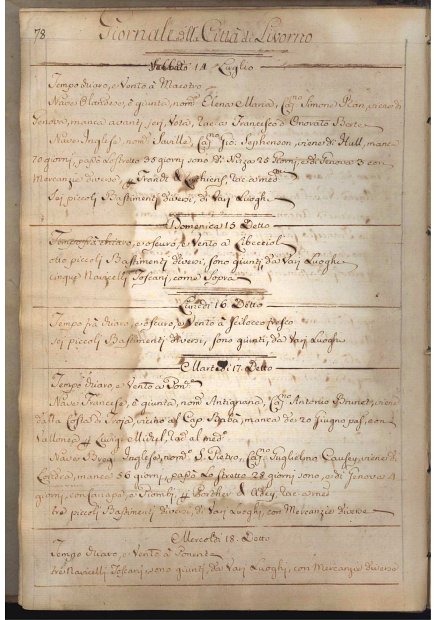 78
Giornali della Città di Livorno
Sabbato 14 Luglio
Tempo chiaro, e Vento à Maestro
Nave Olandese, è giunta, nom.ª Elena Maria, Cap.no Simone viene di
Genova, manca avanti ieri, Vota, rac. a Francesco e Onorato Berte
Nave Inglese, nom.ª Saville, Cap.no Gio. Stephenson, viene di Hull, manca
70 giorni, passò Lo stretto 35 giorni sono, di Nizza 25 giorni, e di Genova 3 con
Mercanzie diverse, rac. a med.mi
Sei piccoli Bastimenti diversi, di Varj Luoghi
Domenica 15 Detto
Tempo frà chiaro, e oscuro, e Vento à Libecciol
otto piccoli Bastimenti diversi, sono giunti, da Varj Luoghi
cinque Navicelli Toscani, come Sopra
Lunedì 16 Detto
Tempo frà chiaro, e oscuro, e Vento à Scilocco fresco
Sei piccoli Bastimenti diversi, sono giunti, da Varj Luoghi
Martedì 17 Detto
Tempo chiaro, e Vento a Pon.e
Nave Francese, è giunta, nom.ª Antignana, Cap.no Antonio Brunet, viene
dalla Costa di Troja, vicino al Cap. Babà, manca de 20 Giugno pas.o, con
Vallonea, Luigi rac. al med.o
Nave Inglese, nom.ª S. Pietro, Cap.no Guglielmo Causey, viene di
Londra, manca 56 giorni, passò Lo stretto 28 giorni sono, e di Genova 4
giorni, con e Piombi, Porcher & Adey, rac. a med.
tre piccoli Bastimenti diversi, di Varj Luoghi, con Mercanzie diverse
Mercoldì 18. Detto
Tempo chiaro, e Vento à Ponente
tre Navicelli Toscani, sono giunti, da Varj Luoghi, con Mercanzie diverse